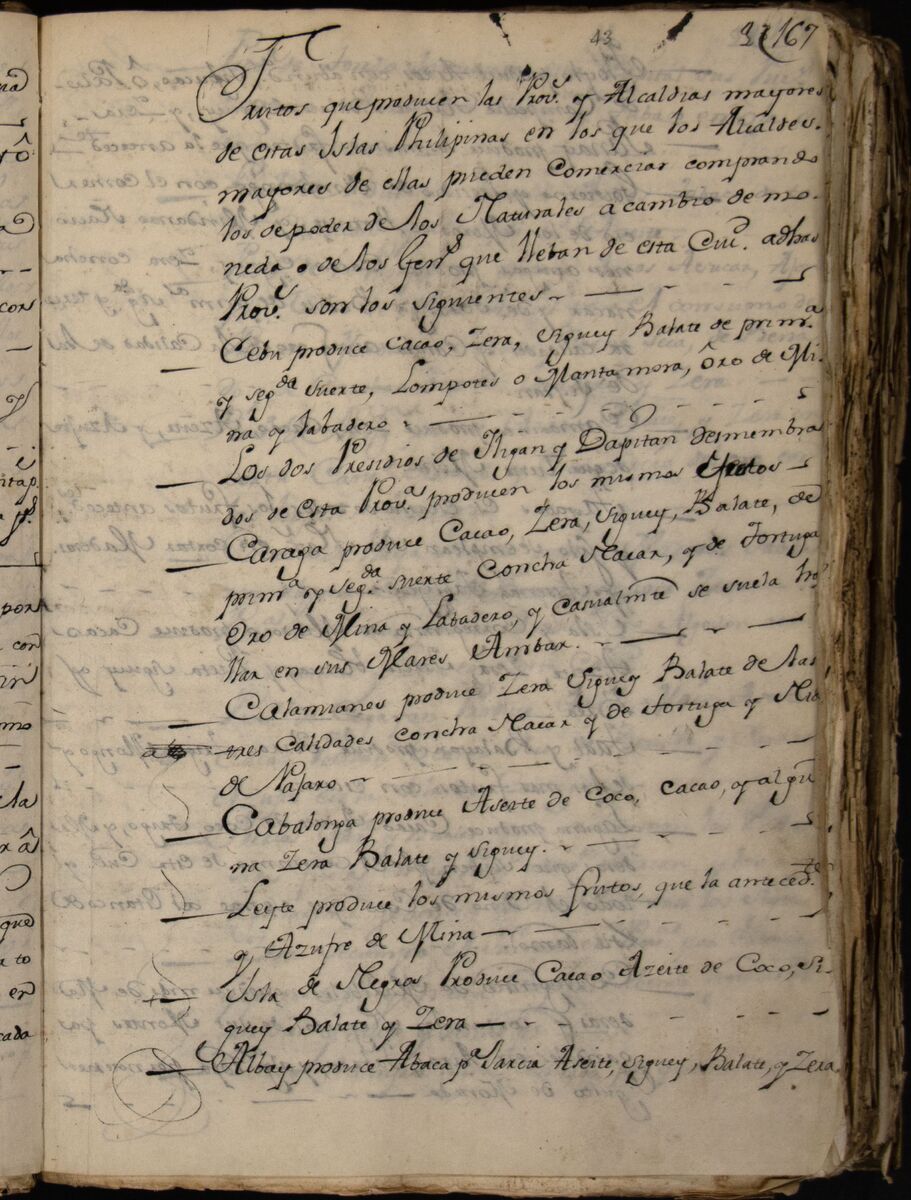 43
37 167
Frutos que producen las Prov.s y Alcaldias mayores
de estas Islas Philipinas en los que los Alcaldes.
mayores de ellas pueden Comerciar comprando
los de poder de los Naturales a cambio de mo-
neda o de los Gen.s que lleban de esta Ciu.d adhas
Prov.s son los siguientes
Cebu produce Cacao, Zera, Siguey Balate de prim.a
y seg.da suerte, Lompotes o Mantamora, Oro de Mi-
na y labadero
Los dos Presidios de Iligan y Dapitan desmembra
dos de esta Prov.a producen los mismos efectos
Caraga produce Cacao, Zera, siguey, Balate, de
prim.a y seg.da suerte Concha Nacar, y de Tortuga
Oro de Mina y Labadero, y casualmte se suela ha-
llar en sus Mares Ambar.
Calamianes produce Zera Siguey Balate de las
tres Calidades concha Nacar y de tortuga y Nido
de Pajaro
Cabalonga produce Aseite de Coco, cacao, y algu
na Zera Balate y siguey.
Leyte produce los mismos frutos, que la anteced.te
y Azufre de Mina
Isla de Negros Produce Cacao Azeite de Coco, Si-
guey Balate y Zera
Albay produce Abaca p.a Jarcia Aseite, siguey, Balate, y Zera